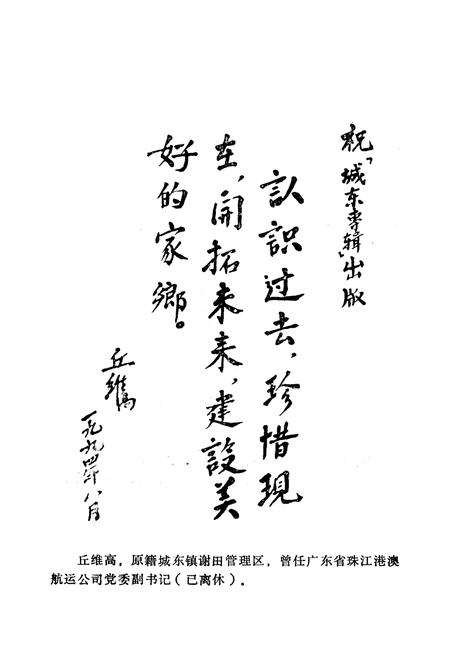 祝「城东专辑」出版
认识过去，珍惜现
在，開拓未来，建設美
好的家鄉。
丘维高
一九九四年八月
丘维高，原籍城东镇谢田管理区，曾任广东省珠江港澳
航运公司党委副书记（已离休）。